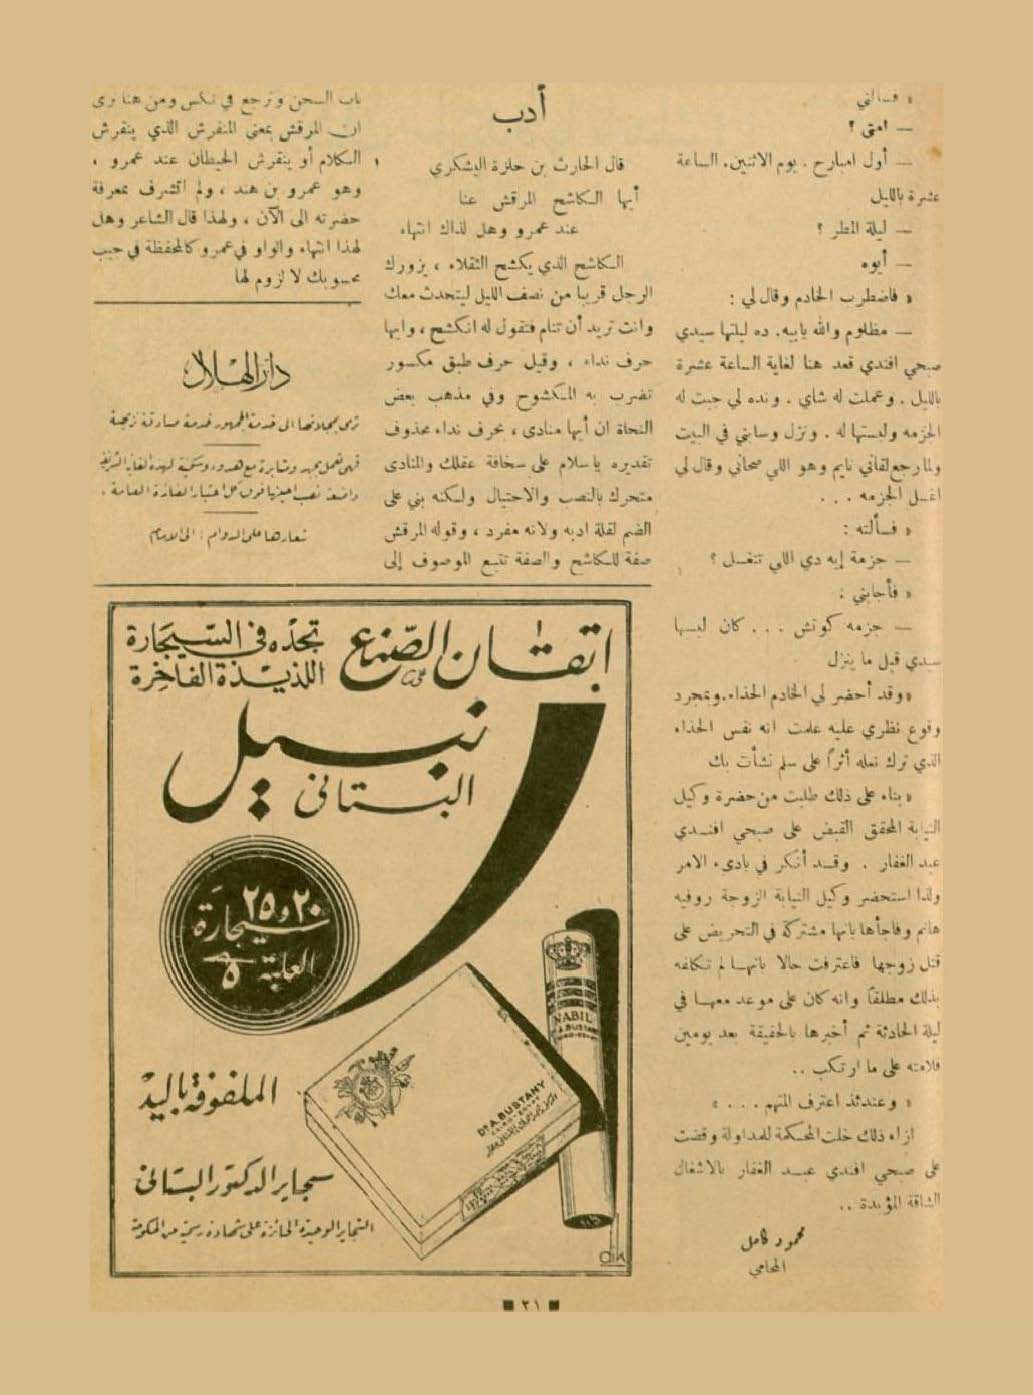 « فسألني
— امتى ؟
— أول امبارح . يوم الاثنين . الساعة
عشرة بالليل
— ليلة المطر ؟
— أيوه
« فاضطرب الخادم وقال لي :
— مظلوم والله يابيه . ده ليلتها سيدي
صبحي افندي قعد هنا لغاية الساعة عشرة
بالليل . وعملت له شاي . ونده لي جبت له
الجزمه ولبستها له . ونزل وسابني في البيت
ولما رجع لقاني نايم وهو اللي صحاني وقال لي
اغسل الجزمه . . .
« فسألته :
— جزمة إيه دي اللي تنغسل ؟
« فأجابني :
— جزمه كوتش . . . كان لبسها
سيدي قبل ما ينزل
« وقد أحضر لي الخادم الحذاء . وبمجرد
وقوع نظري عليه علمت انه نفس الحذاء
الذي ترك نعله أثراً على سلم نشأت بك
« بناء على ذلك طلبت من حضرة وكيل
النيابة المحقق القبض على صبحي افندي
عبد الغفار . وقد أنكر في بادىء الامر
ولذا استحضر وكيل النيابة الزوجة روفيه
هانم وفاجأها بانها مشتركة في التحريض على
قتل زوجها فاعترفت حالا بانها لم تكلفه
بذلك مطلقاً وانه كان على موعد معها في
ليلة الحادثة ثم أخبرها بالحقيقة بعد يومين
فلامته على ما ارتكب ..
« وعندئذ اعترف المتهم . . . »
ازاء ذلك خلت المحكمة للمداولة وقضت
على صبحي افندي عبد الغفار بالاشغال
الشاقة المؤبدة ..
محمود كامل
المحامي
أدب
قال الحارث بن حلزة اليشكري
أيها الكاشح المرقش عنا
عند عمرو وهل لذاك انتهاء
الكاشح الذي يكشح الثقلاء ، يزورك
الرجل قريبا من نصف الليل ليتحدث معك
وانت تريد أن تنام فتقول له انكشح ، وايها
حرف نداء ، وقيل حرف طبق مكسور
تضرب به المكشوح وفي مذهب بعض
النحاة ان أيها منادى ، بحرف نداء محذوف
تقديره ياسلام على سخافة عقلك والمنادى
متحرك بالنصب والاحتيال ولكنه بني على
الضم لقلة ادبه ولانه مفرد ، وقوله المرقش
صفة للكاشح والصفة تتبع الموصوف إلى
باب السجن وترجع في نكس ومن هنا نرى
ان المرقش بمعنى المنقرش الذي ينقرش
الكلام أو ينقرش الحيطان عند عمرو ،
وهو عمرو بن هند ، ولم اتشرف بمعرفة
حضرته الى الآن ، ولهذا قال الشاعر وهل
لهذا انتهاء والواو في عمرو كالمحفظة في جيب
محسوبك لا لزوم لها
دار الهلال
ترمى بمجلاتها الى خدمة الجمهور خدمة صادقة نزيهة
فهى تعمل بجهد ومثابرة مع هدوء وسكينة لهذه الغاية الشريفة
واضعة نصب اعينها فوق كل اعتبار الفائدة العامة .
شعارها على الدوام : الى الامام
اتقان الصنع
تجده في السيجارة
اللذيذة الفاخرة
نبيل
البستاني
٢٠ و ٢٥
سيجارة
العلبة ٥
NABIL
Dr A. BUSTANY
CAIRO - EGYPT
الملفوفة باليد
سجاير الدكتور البستاني
السجاير الوحيدة الحائزة على شهادة رسمية من الحكومة
٢١